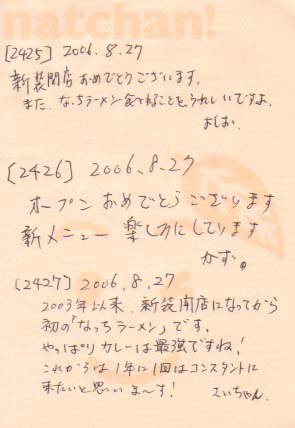 natchan!
[2425] 2006.8.27
新装開店おめでとうございます。
また、なっちラーメン食べれることをうれしいですよ。
よしおい
[2426] 2006.8.27
オープン おめでとうございます
新メニュー 楽しみにしてます
かず。
[2427] 2006.8.27
2003年以来、新装開店になってから
初の「なっちラーメン」です。
やっぱりカレーは最強ですね!
これからは1年に1回はコンスタントに
来たいと思いま〜す!
えいちゃん.